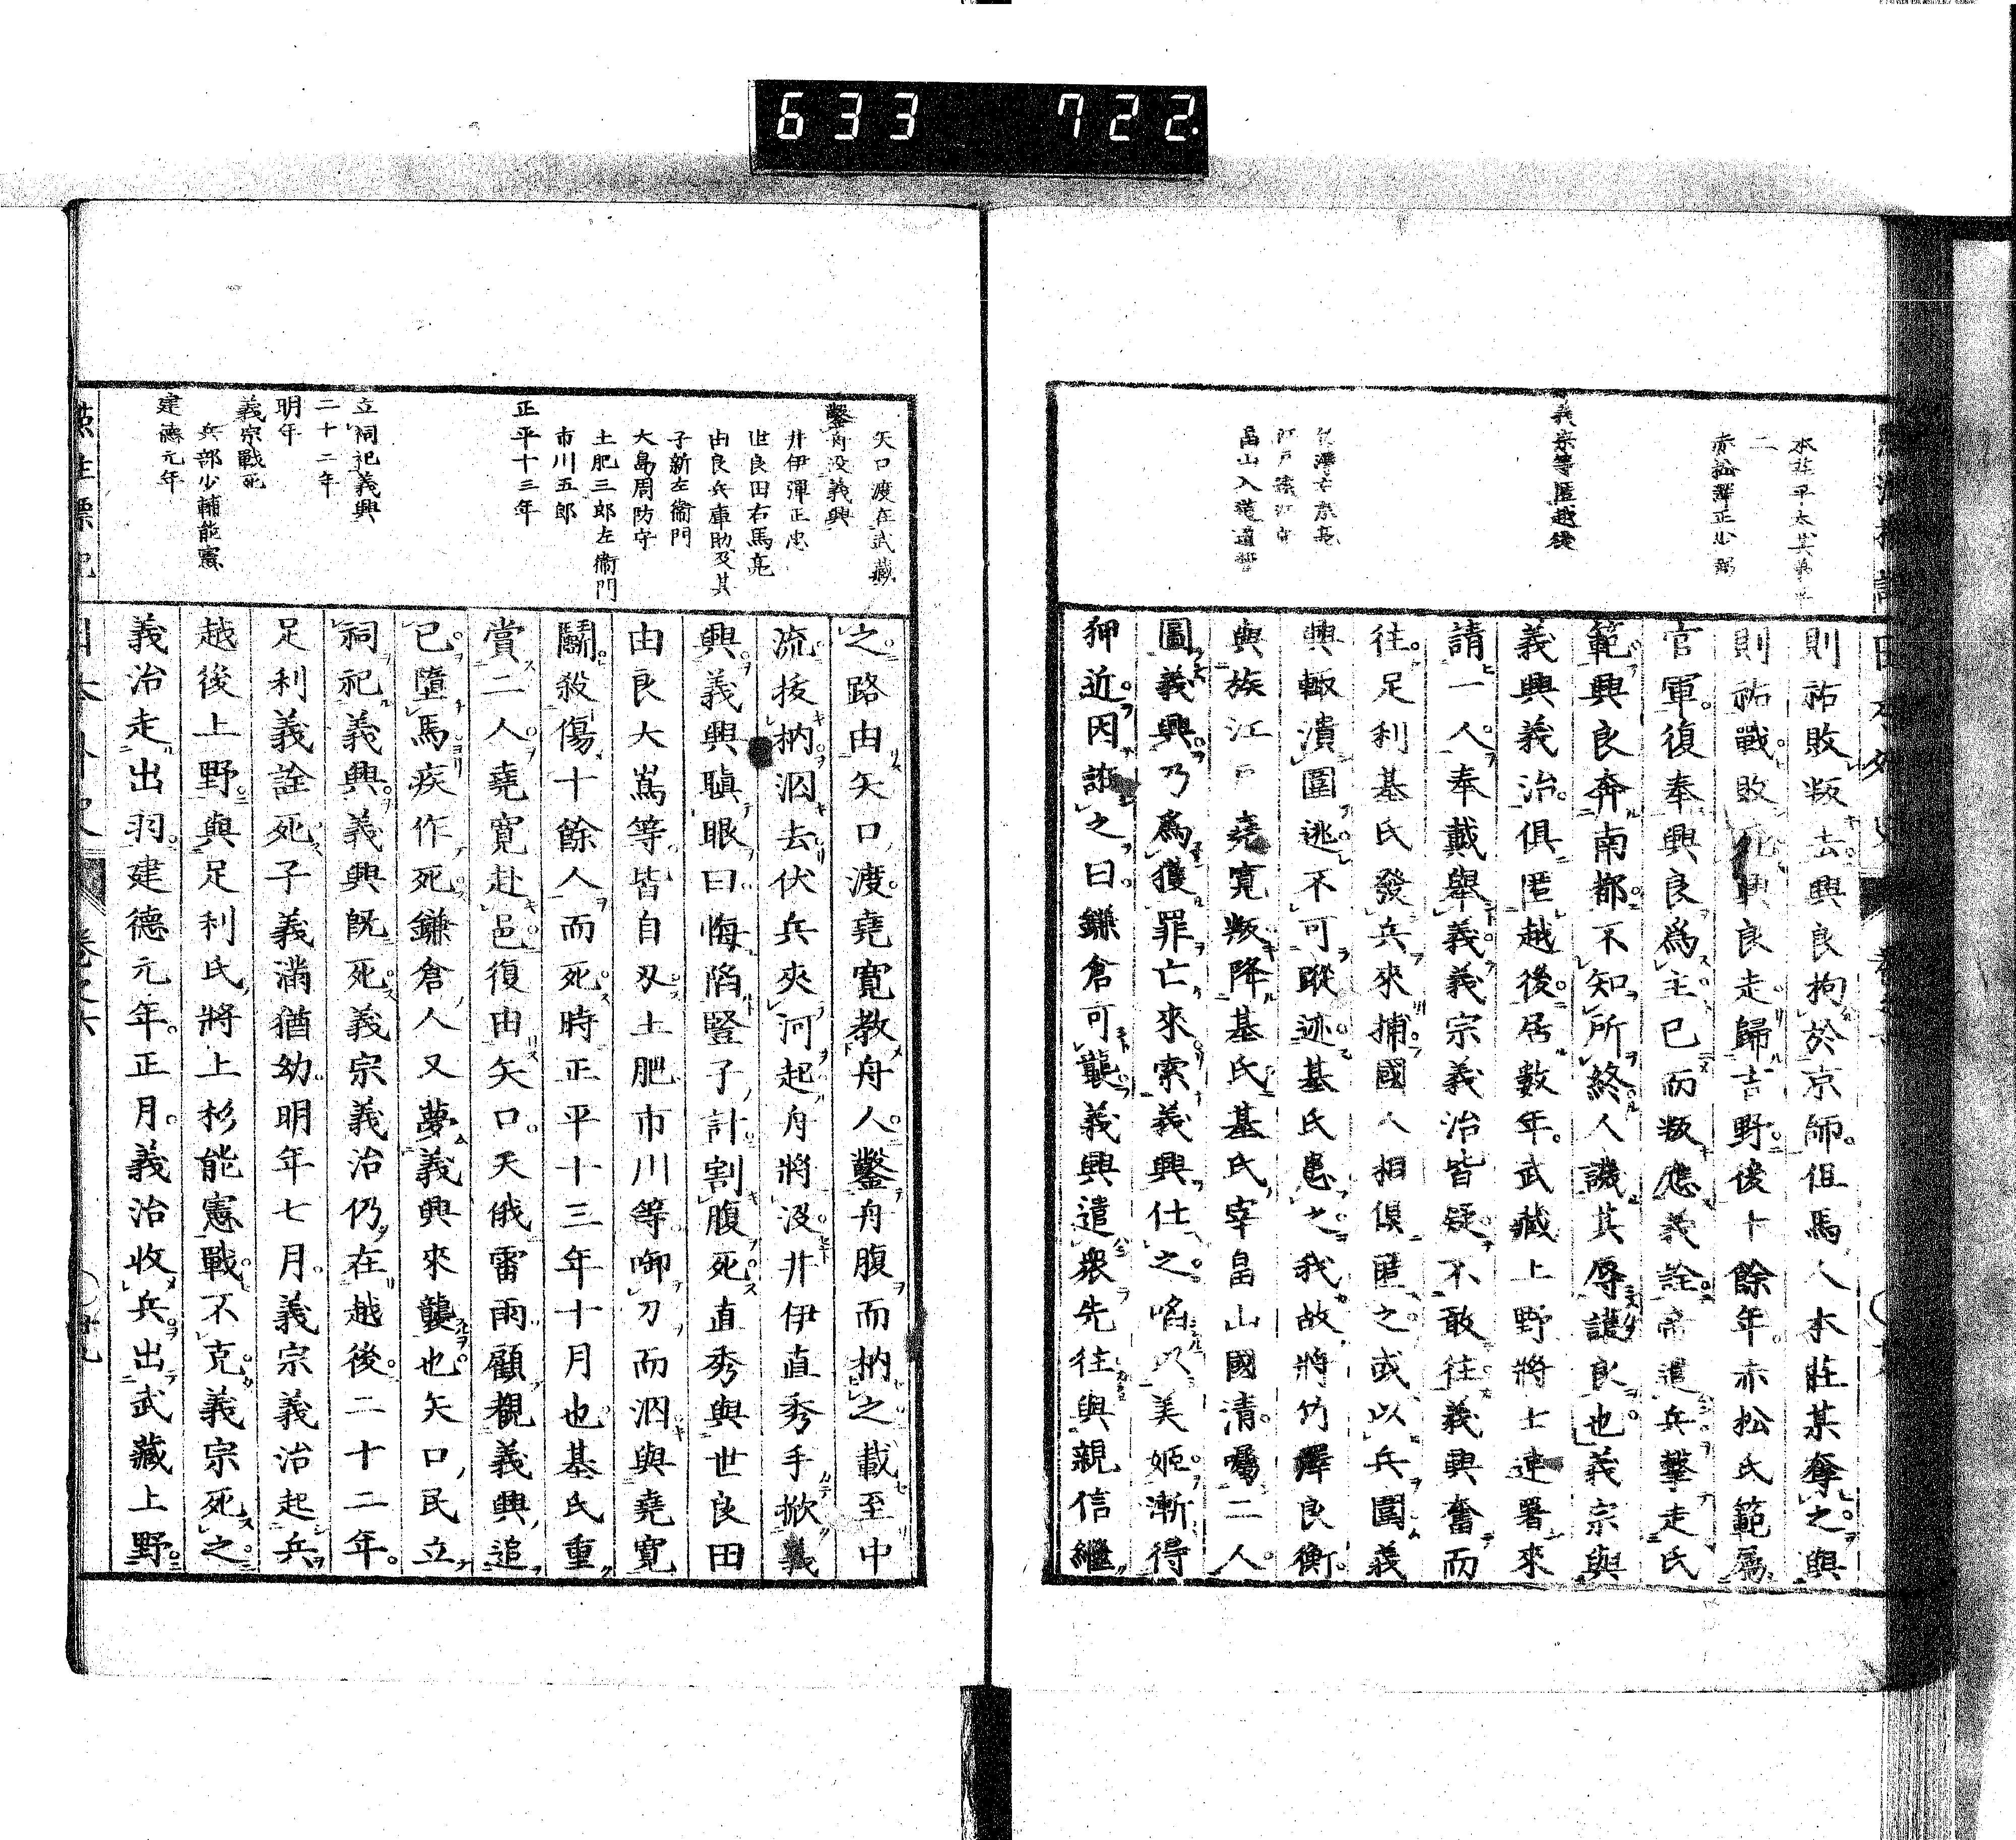 633 722
則祐敗叛去興良拘於京師但馬人本莊某奪之與
則祐戰敗 興良走歸吉野後十餘年赤松氏範爲
官軍復奉興良爲主已而叛應義詮帝遣兵擊走氏
範興良奔南都不知所終人譏其辱護良也義宗與
義興義治俱匿越後居數年武藏上野將士連署來
請一人奉戴舉義義宗義治皆疑不敢往義興奮而
往足利基氏發兵來捕國人相俱匿之或以兵圍義
興輙潰圍逃不可蹤迹基氏患之我故將竹澤良衡
與族江戶堯寬叛降基氏基氏宰畠山國清囑二人
圖義興乃爲獲罪亡來索義興仕之啗以美姬漸得
狎近因 之曰鎌倉可襲義興遣衆先往與親信繼
本莊平太其弟平
二
赤松彈正少弼
義宗等匿越後
竹澤右京亮
江戶遠江守
畠山入道道誓
之路由矢口渡堯寬教舟人鑿舟腹而枘之載至中
流拔枘泅去伏兵夾河起舟將沒井伊直秀手掀義
興義興瞋眼曰悔陷豎子計割腹死直秀與世良田
由良大嶌等皆自刄土肥市川等啣刀而泅與堯寬
鬭殺傷十餘人而死時正平十三年十月也基氏重
賞二人堯寬赴邑復由矢口天俄雷雨顧覩義興追
已墮馬疾作死鎌倉人又夢義興來襲也矢口民立
祠祀義興義興旣死義宗義治仍在越後二十二年
足利義詮死子義滿猶幼明年七月義宗義治起兵
越後上野與足利氏將上杉能憲戰不克義宗死之
義治走出羽建德元年正月義治收兵出武藏上野
矢口渡在武藏
鑿舟沒義興
井伊彈正忠
世良田右馬亮
由良兵庫助及其
子新左衞門
大島周防守
土肥三郎左衞門
市川五郎
正平十三年
立祠祀義興
二十二年
明年
義宗戰死
兵部少輔能憲
建德元年